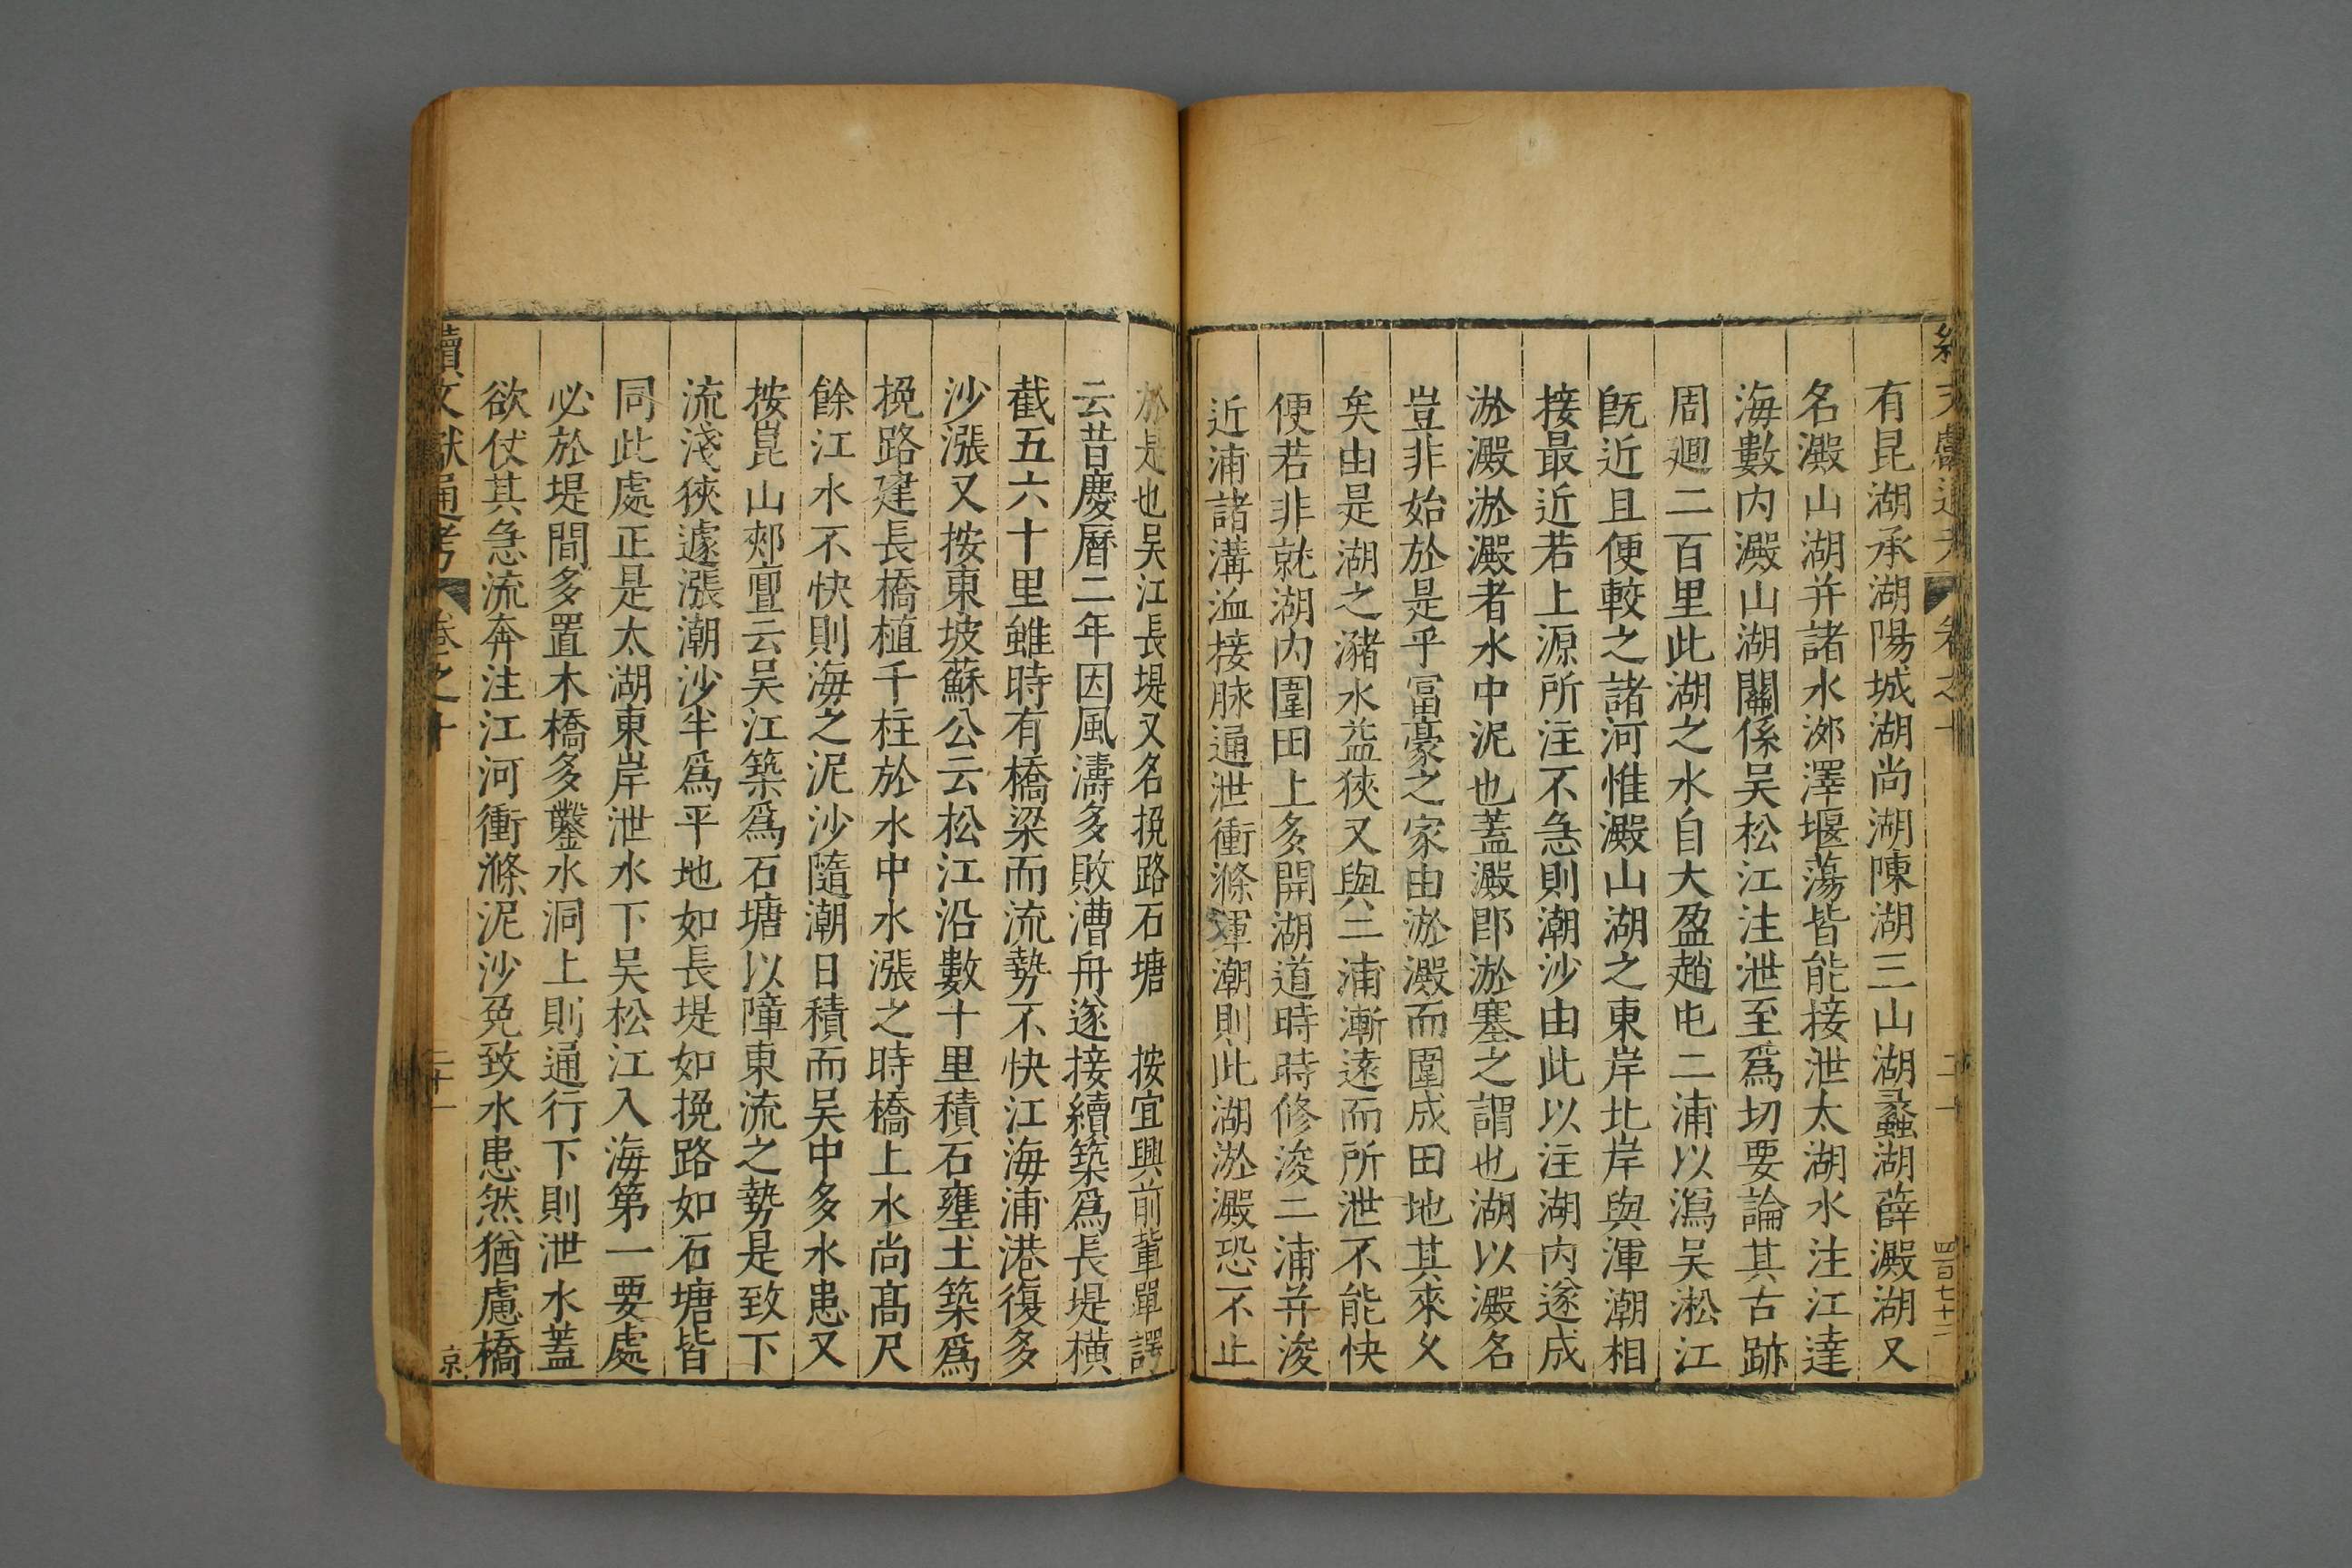 有昆湖承湖陽城湖尚湖陳湖三山湖蠡湖薛澱湖又
名澱山湖并諸水澤堰蕩皆能接泄太湖水注江達
海數内澱山湖關係吴松江注泄至爲切要論其古跡
周迴二百里此湖之水自大盈趙屯二浦以瀉吴淞江
旣近且便較之諸河惟澱山湖之東岸北岸與渾潮相
接最近若上源所注不急則潮沙由此以注湖内遂成
淤澱淤澱者水中泥也蓋澱卽淤塞之謂也湖以澱名
豈非始於是乎冨豪之家由淤澱而圍成田地其來乆
矣由是湖之瀦水益狹又與二浦漸遠而所泄不能快
便若非就湖内圍田上多開湖道時時修浚二浦并浚
近浦諸溝洫接脉通泄衝滌渾潮則此湖淤澱恐不止
於是也吴江長堤又名挽路石塘 按宜興前軰單諤
云昔慶曆二年因風濤多敗漕舟遂接續築爲長堤横
截五六十里雖時有橋梁而流勢不快江海浦港復多
沙漲又按東坡蘇公云松江沿數十里積石壅土築爲
挽路建長橋植千柱於水中水漲之時橋上水尚高尺
餘江水不快則海之泥沙隨潮日積而吴中多水患又
按崑山郟亶云吴江築爲石塘以障東流之勢是致下
流淺狹遽漲潮沙半爲平地如長堤如挽路如石塘皆
同此處正是太湖東岸泄水下吴松江入海第一要處
必於堤間多置木橋多鑿水洞上則通行下則泄水蓋
欲仗其急流奔注江河衝滌泥沙免致水患然猶慮橋
續文獻通考 卷之十 二十一 京